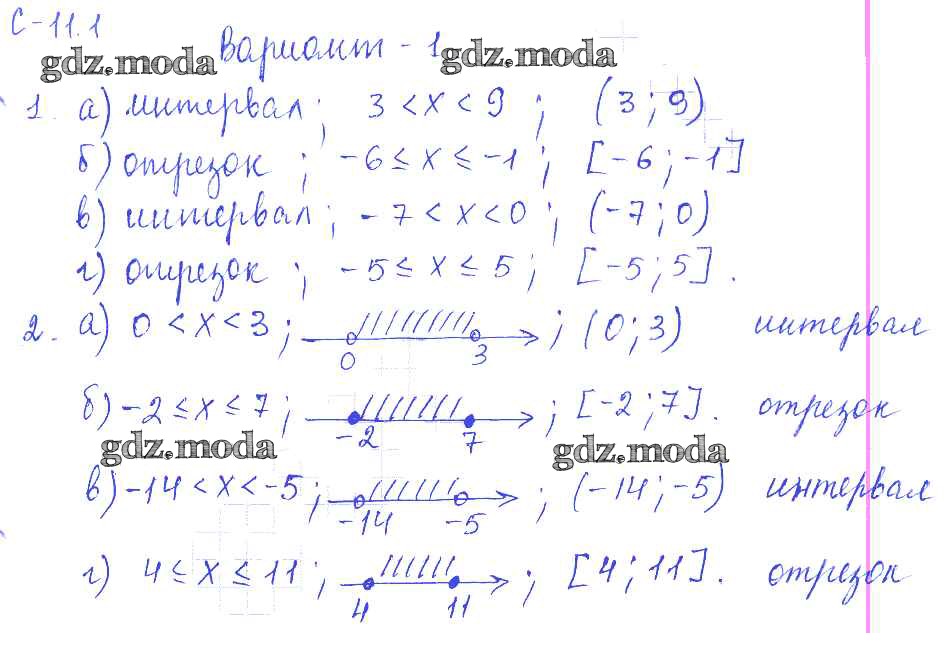 С-11.1
gdz.moda Вариант - 1 gdz.moda
1. а) интервал ; 3 < x < 9 ; (3 ; 9)
б) отрезок ; -6 ≤ x ≤ -1 ; [-6 ; -1]
в) интервал ; -7 < x < 0 ; (-7 ; 0)
г) отрезок ; -5 ≤ x ≤ 5 ; [-5 ; 5] .
2. а) 0 < x < 3 ; 0 3 ; (0 ; 3) интервал
б) -2 ≤ x ≤ 7 ; -2 7 ; [-2 ; 7] . отрезок
gdz.moda gdz.moda
в) -14 < x < -5 ; -14 -5 ; (-14 ; -5) интервал
г) 4 ≤ x ≤ 11 ; 4 11 ; [4 ; 11] . отрезок